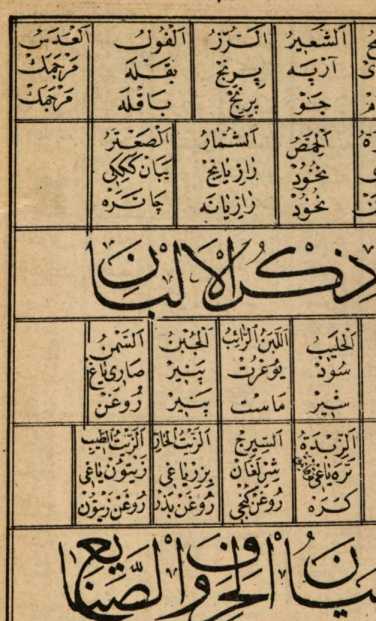 الشعير
آرپه
جو
الرز
پرنج
برنج
الفول
بقله
باقله
العدس
مرجمك
مرجمك
الحمص
نخود
نخود
الشمار
رازيانه
الصعتر
يبان
ذكر الالبان
الحليب
سود
شير
اللبن الرائب
يوغرت
ماست
الجبن
پنير
پنير
السمن
صارى ياغ
روغن
الزبدة
تره ياغى
كره
السيرج
شرلغان
روغن كنجى
الزيت الحار
بزر ياغى
روغن بذر
الزيت الطيب
زيتون ياغى
روغن زيتون
يان الحرف والصنايع